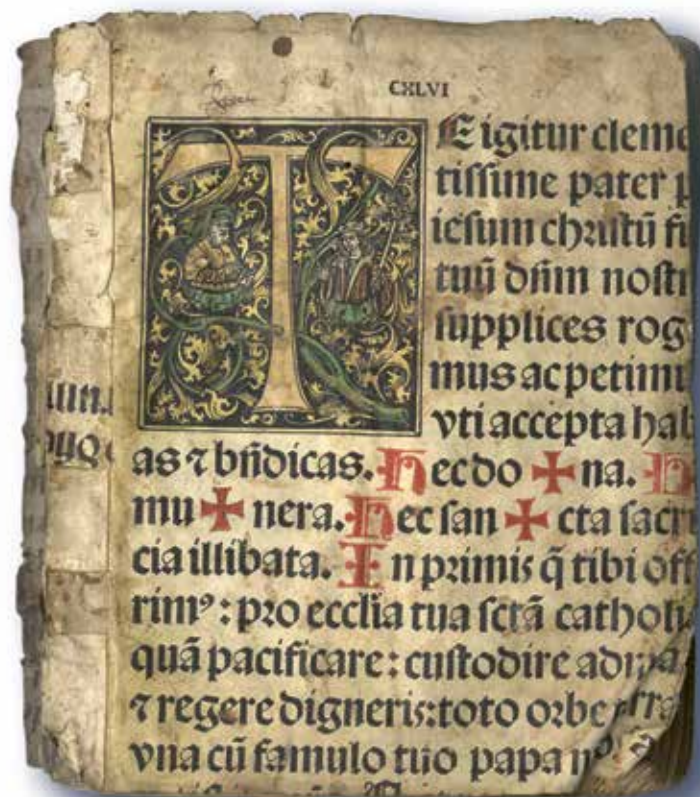 CXLVI
TE igitur cleme
tissime pater p
iesum christū fi
tuū dn̄m nostr
supplices rog
mus ac petimu
vti accepta hab
as ⁊ bn̄dicas. Hec do ✠ na. H
mu ✠ nera. Hec san ✠ cta sacri
cia illibata. In primis q̄ tibi off
rimꝰ : pro ecclia tua sctā catholi
quā pacificare : custodire adu
⁊ regere digneris: toto orbe
vna cū famulo tuo papa